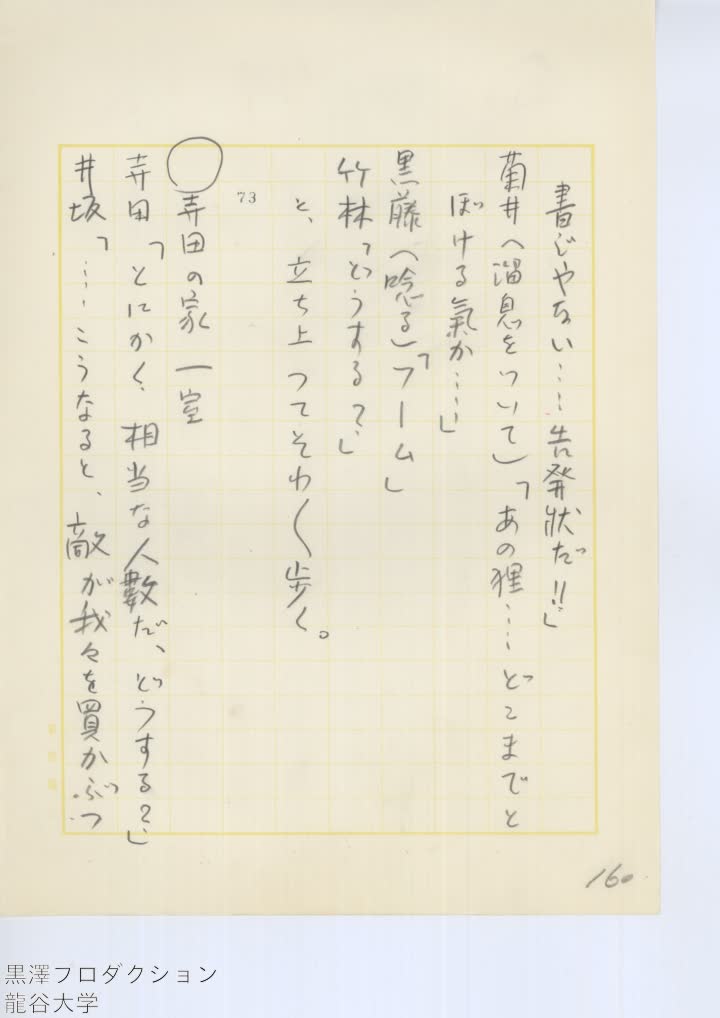 書じやない……告発狀だ!!」
菊井（溜息をついて）「あの狸……どこまでと
ぼける氣か……」
黒藤（唸る）「フーム」
竹林「どうする？」
と、立ち上つてそわ〱歩く。
73
○寺田の家 一室
寺田「とにかく、相当な人數だ、どうする？」
井坂「……こうなると、敵が我々を買かぶつ
160
黒澤プロダクション
龍谷大学